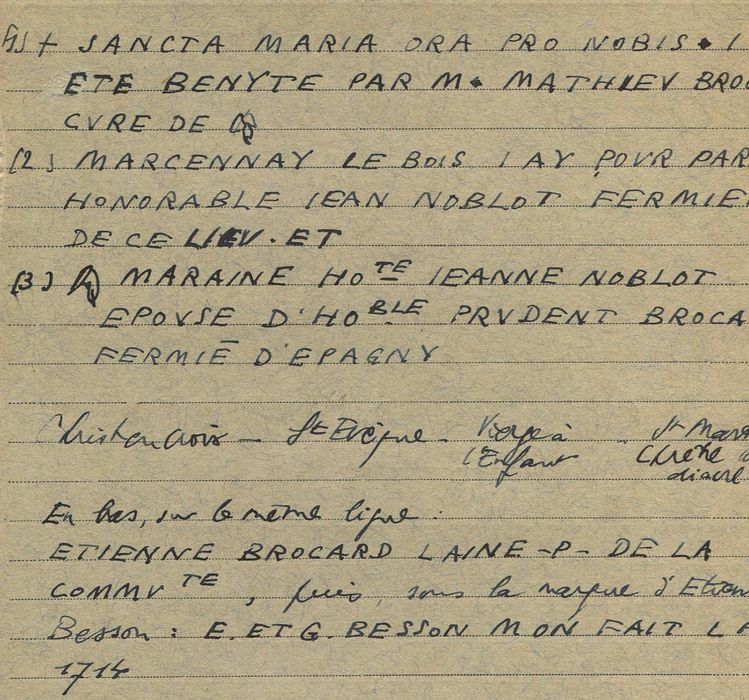 (1) + SANCTA MARIA ORA PRO NOBIS • I
ETE BENYTE PAR M• MATHIEV BROC
CVRE DE
(2) MARCENNAY LE BOIS I AY POVR PAR
HONORABLE IEAN NOBLOT FERMIE
DE CE LIEV. ET
(3) MARAINE HOTE IEANNE NOBLOT
EPOVSE D'HOBLE PRVDENT BROCA
FERMIĒ D'EPAGNY
Christ en croix – St Evêque – Vierge à l'Enfant – St Mar
diacre
En bas, sur la même ligne :
ETIENNE BROCARD LAINE -P- DE LA
COMMVTE, puis, sous la marque d'Etien
Besson : E. ET G. BESSON MON FAIT L A
1714